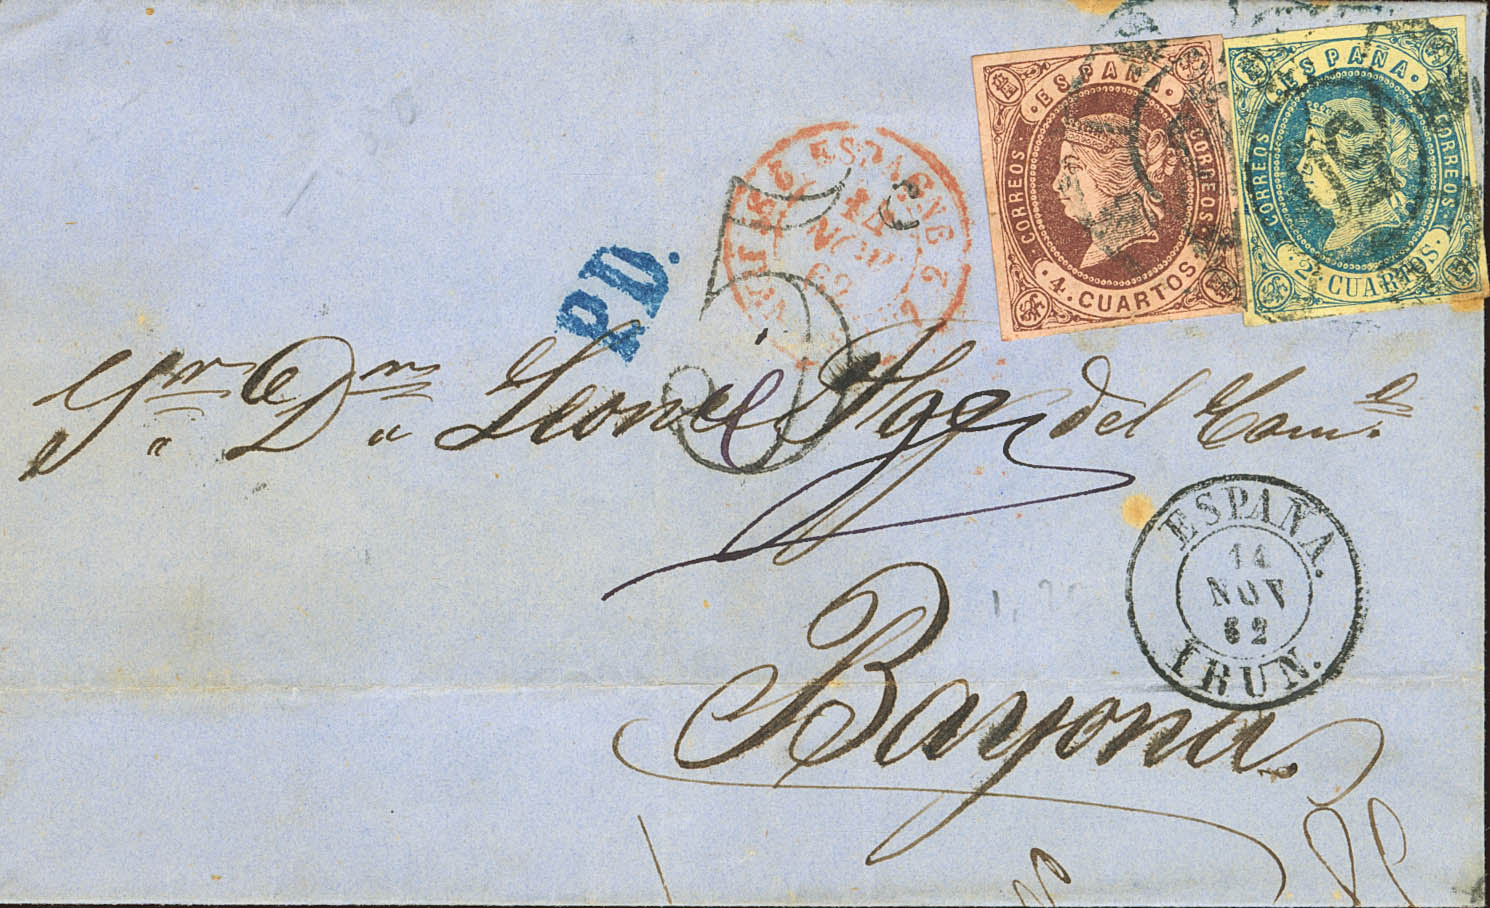 ESPAÑA
CORREOS
CORREOS
4. CUARTOS
ESPAÑA
CORREOS
CORREOS
2 CUARTOS
ESPAGNE
14
NOV
62
2
P.D.
Sr. Dn. Leonce del Com.
ESPAÑA.
14
NOV
62
IRUN.
Bayona.